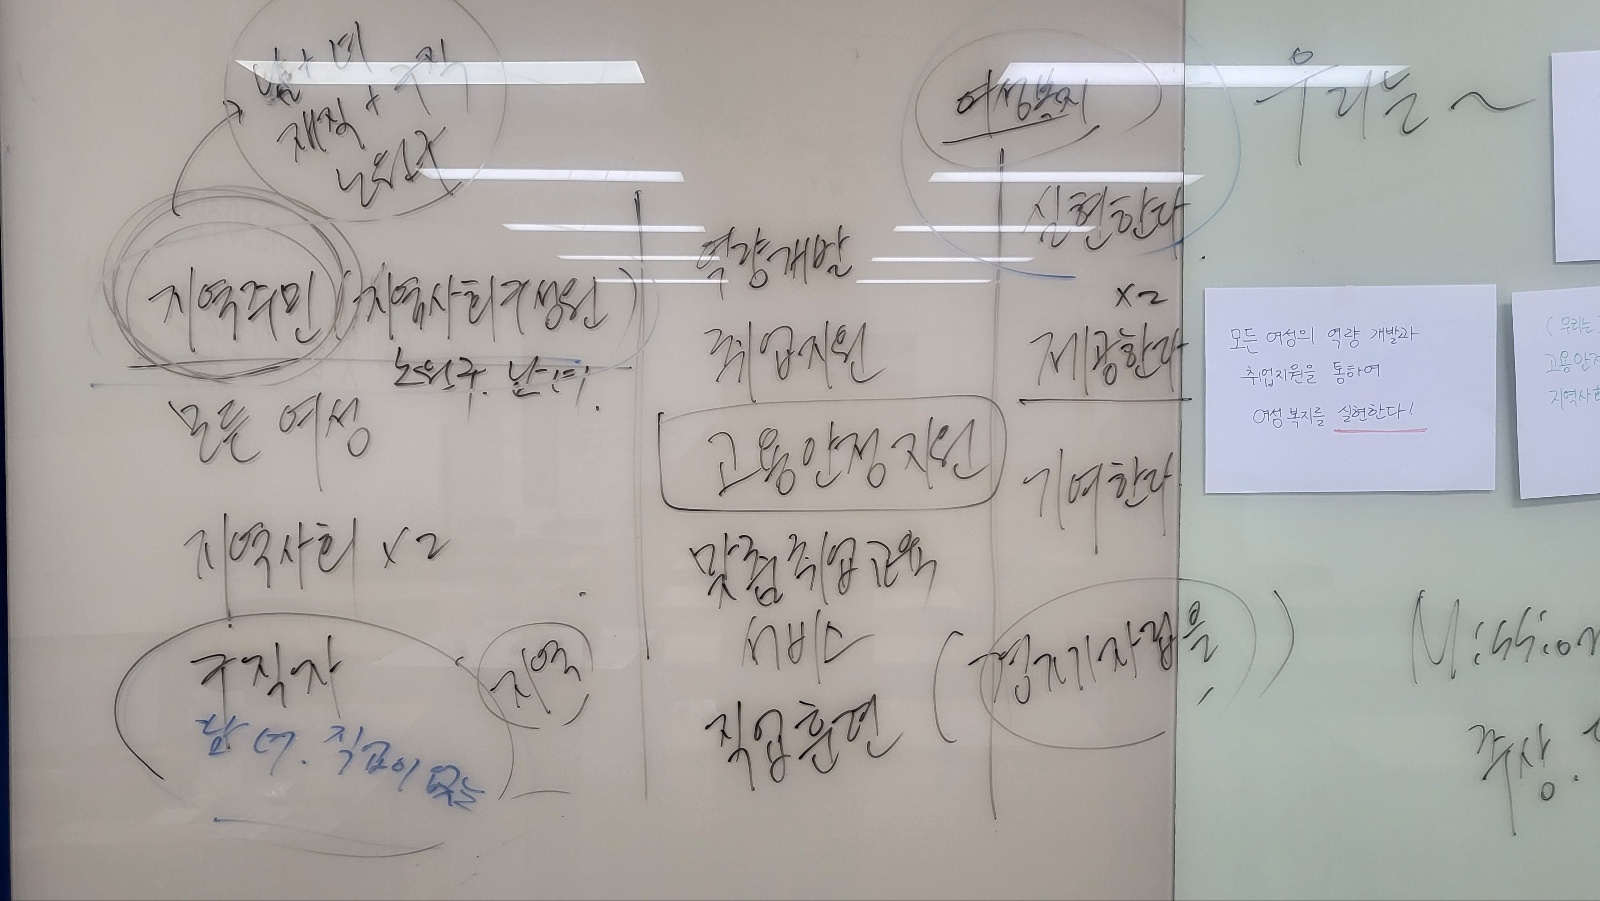 남+여
재직+구직
노원구
지역주민 (지역사회구성원)
노원구. 남.여.
모든 여성
지역사회 x2
구직자
남 여. 직업이 없는
지역
역량개발
취업지원
고용안정지원
맞춤취업교육
서비스
직업훈련
여성복지
실현한다.
x2
제공한다
기여한다
(경제자립을)
우리는~
모든 여성의 역량 개발과
취업지원을 통하여
여성복지를 실현한다!
(우리는
고용안정
지역사회
Mission
추상.